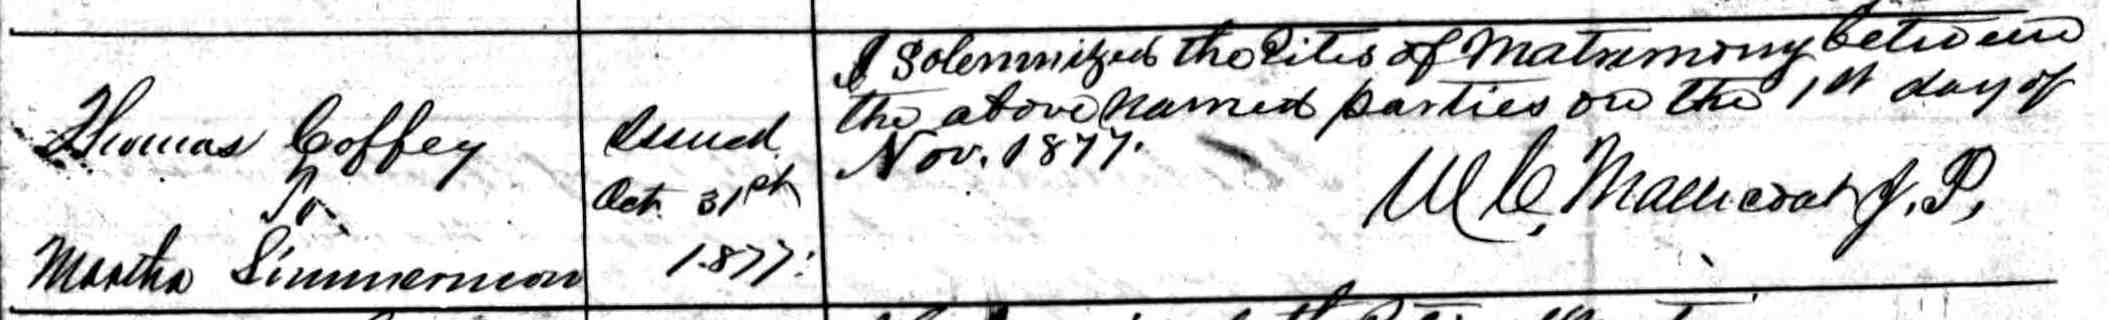 Thomas Coffey
To
Martha Simmermon
Issued
Oct. 31st
1877.
I Solemnized the Rites of Matrimony between
the above named parties on the 1st day of
Nov. 1877.
W C, Mallicoat J. P.